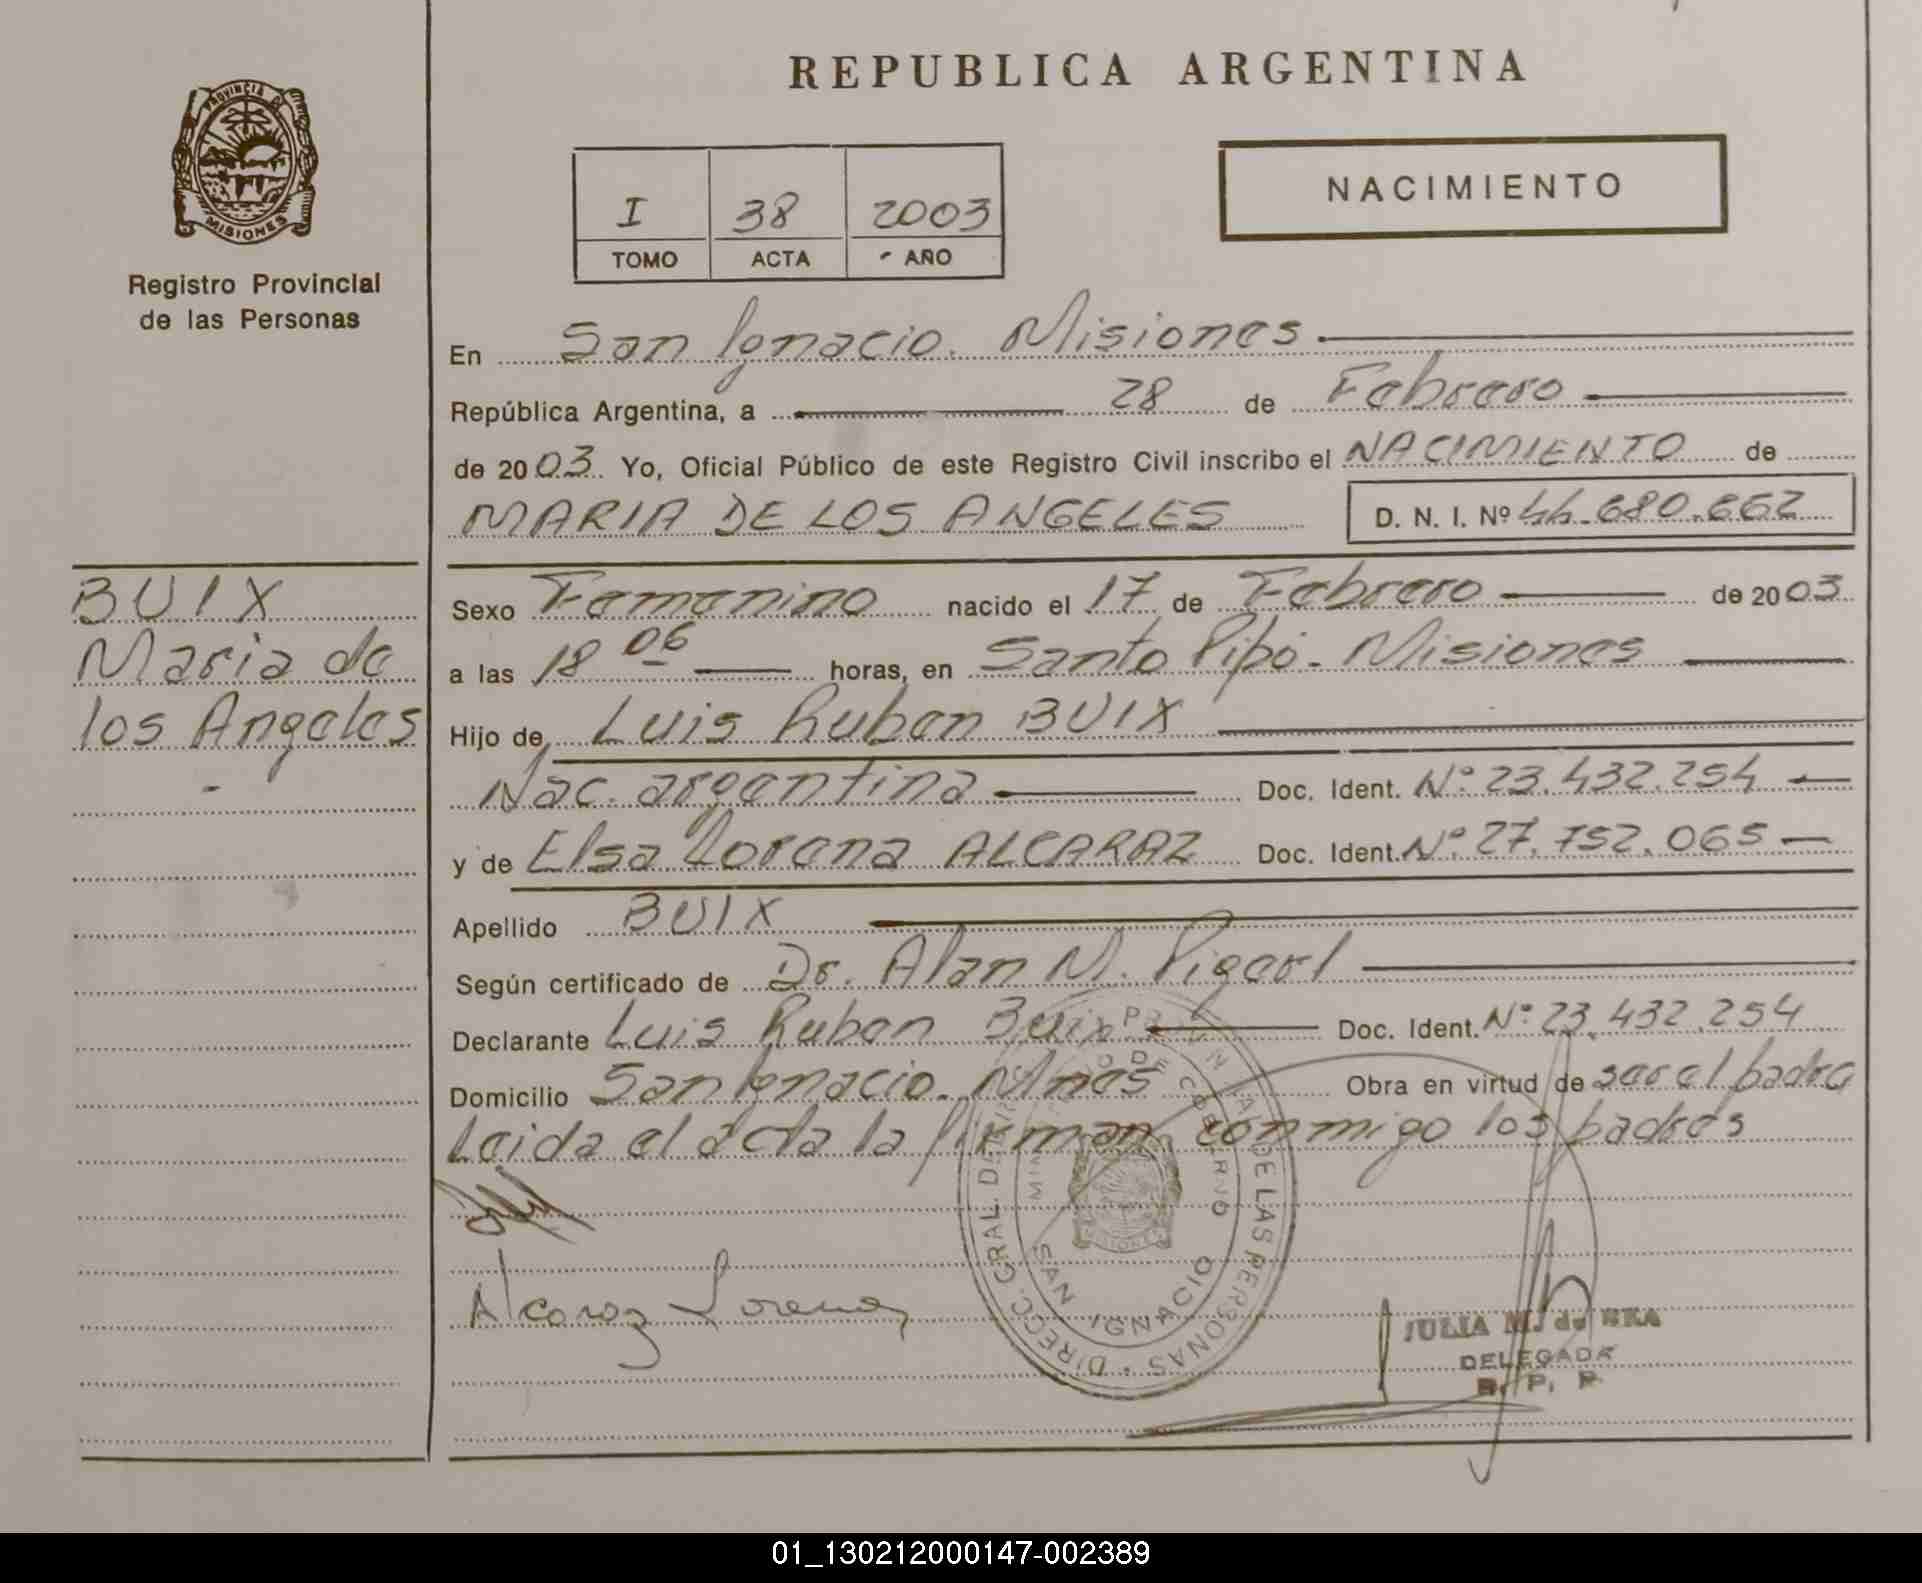 REPUBLICA ARGENTINA
PROVINCIA DE
MISIONES
Registro Provincial
de las Personas
NACIMIENTO
I 38 2003
TOMO ACTA AÑO
En San Ignacio. Misiones
República Argentina, a 28 de Febrero
de 2003. Yo, Oficial Público de este Registro Civil inscribo el NACIMIENTO de
MARIA DE LOS ANGELES D. N. I. Nº 44.680.662
BUIX
Maria de
los Angeles
-
Sexo Femenino nacido el 17 de Febrero de 2003
a las 18 06 horas, en Santo Pipó - Misiones
Hijo de Luis Ruben BUIX
Nac. argentina Doc. Ident. Nº 23.432.254
y de Elsa Lorena ALCARAZ Doc. Ident. Nº 27.752.065
Apellido BUIX
Según certificado de Dr. Alan M.
Declarante Luis Ruben Buix Doc. Ident. Nº 23.432.254
Domicilio San Ignacio. Mnes Obra en virtud de ser el padre
Leida el acta la firman conmigo los padres
Alcaraz Lorena
DIRECC. GRAL. DE LAS PERSONAS
SAN IGNACIO
MISIONES
JULIA M. de
DELEGADA
R. P. P.
01_130212000147-002389